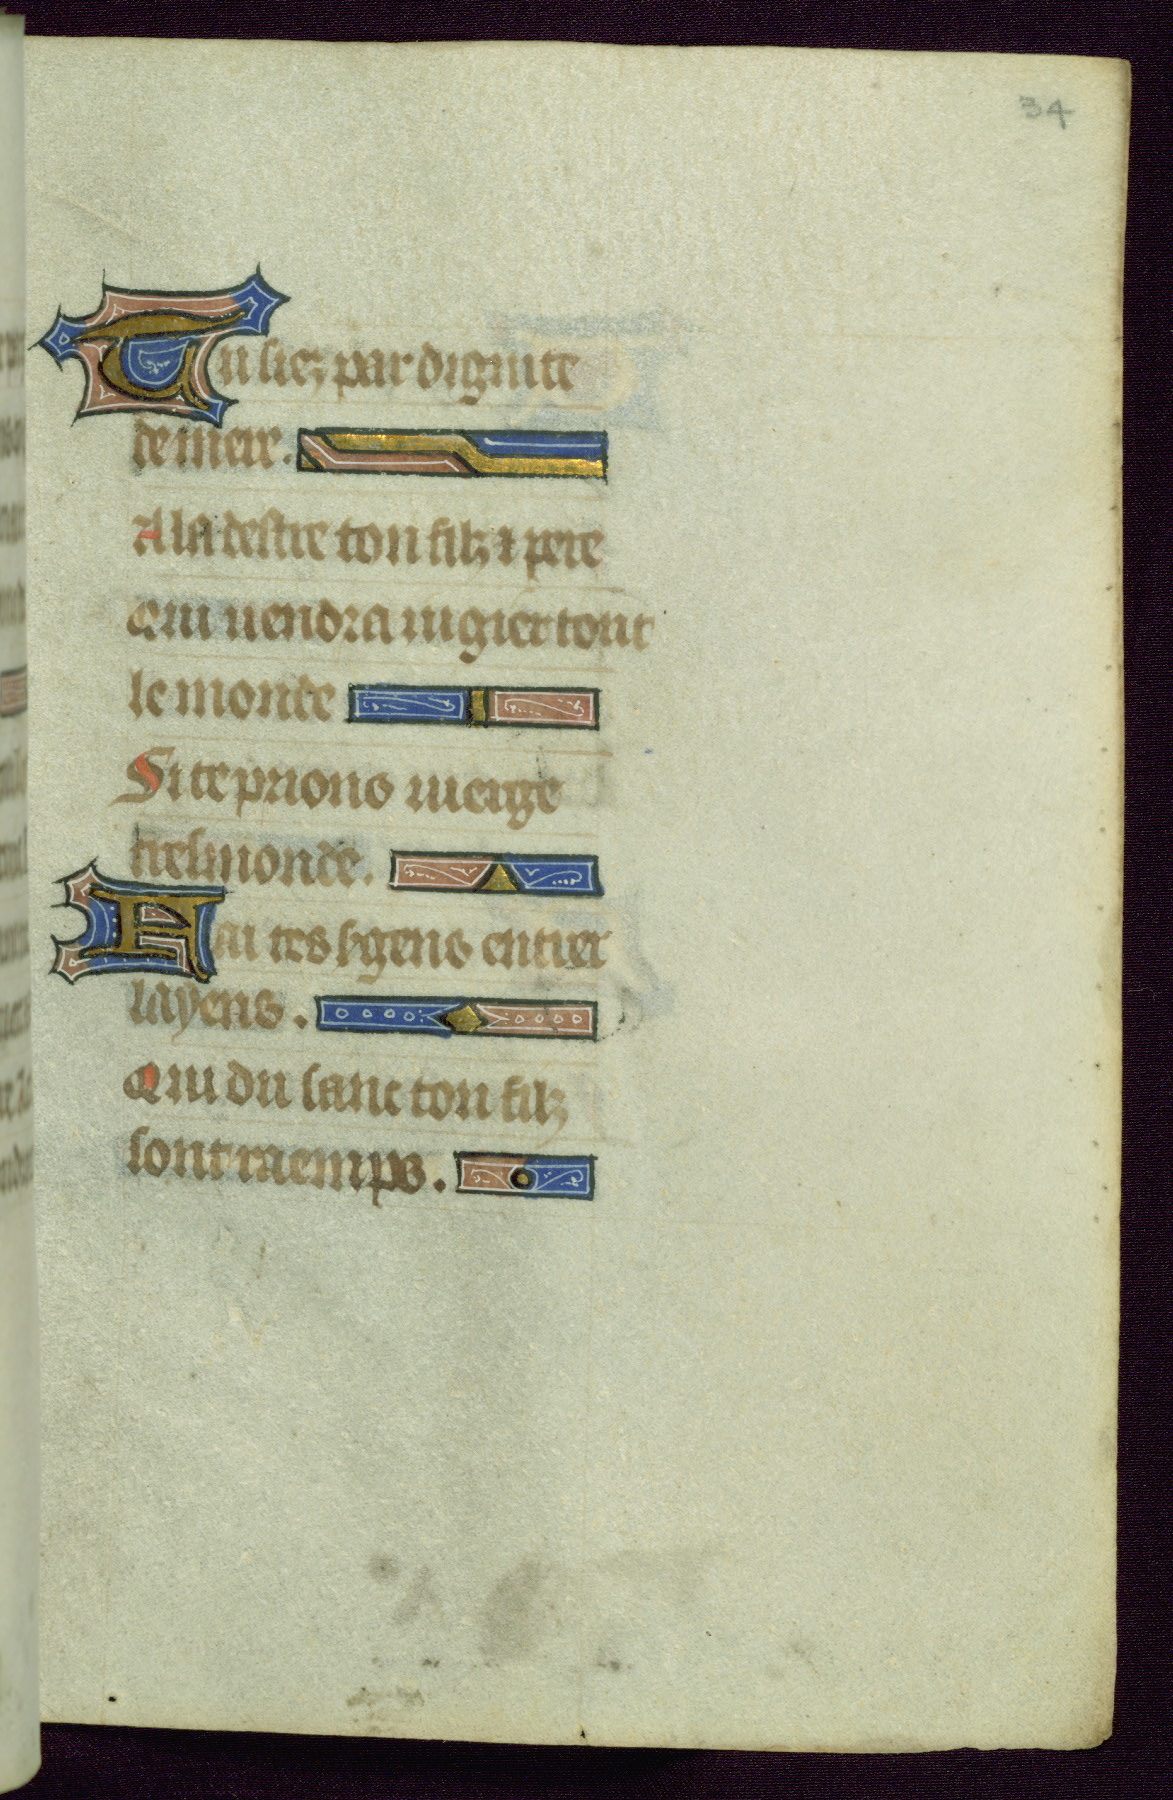 34
Tu siez par dignite
de mere.
A la destre ton filz ⁊ pere
Qui uendra iugier tout
le monde
Si te prions uierge
tresmonde.
Fai tes sgens entier
layens.
Qui du sanc ton filz
sont raemps.